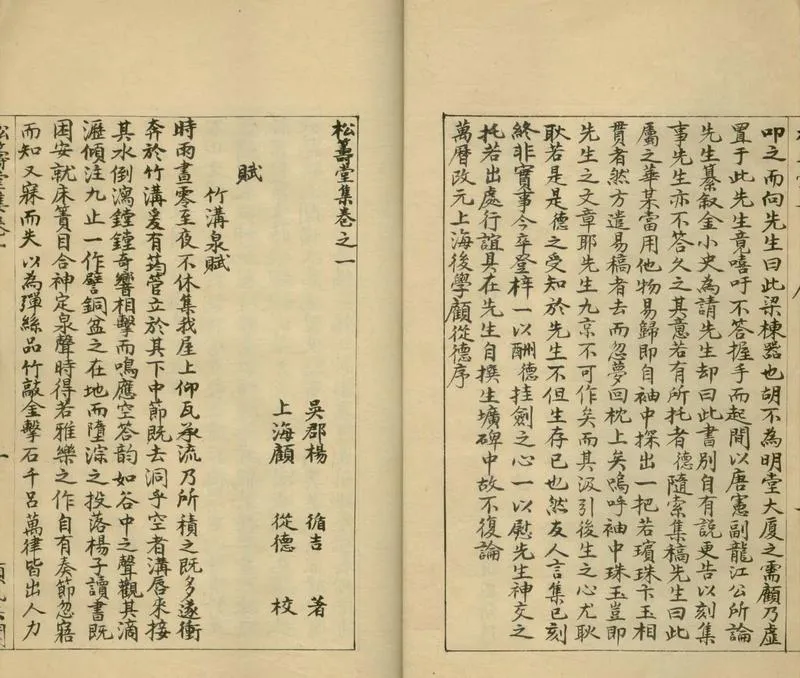 叩之而向先生曰此梁棟器也胡不為明堂大厦之需顧乃虛
置于此先生竟嘻吁不答握手而起間以唐憲副龍江公所論
先生纂叙金小史為請先生却曰此書別自有說更告以刻集
事先生亦不答久之其意若有所托者德隨索集稿先生曰此
屬之華某當用他物易歸即自袖中探出一把若璸珠卞玉相
貫者然方遣易稿者去而忽夢回枕上矣嗚呼袖中珠玉豈即
先生之文章耶先生九京不可作矣而其汲引後生之心尤耿
耿若是是德之受知於先生不但生存已也然友人言集已刻
終非實事今卒登梓一以酬德挂劍之心一以慰先生神交之
托若出處行誼具在先生自撰生壙碑中故不復論
萬曆改元上海後學顧從德序
松籌堂集卷之一
吳郡楊 循吉 著
上海顧 從德 校
賦
竹溝泉賦
時雨晝零至夜不休集我屋上仰瓦承流乃所積之既多遂衝
奔於竹溝爰有筠菅立於其下中節既去洞乎空者溝唇來接
其水倒瀉鏜鏜奇響相擊而鳴應空答韵如谷中之聲觀其滴
瀝傾注九止一作譬銅盆之在地而墮淙之投落楊子讀書既
困安就床簀目合神定泉聲時得若雅樂之作自有奏節忽寤
而知又寐而失以為彈絲品竹敲金擊石千呂萬律皆出人力
松籌堂集卷一
一